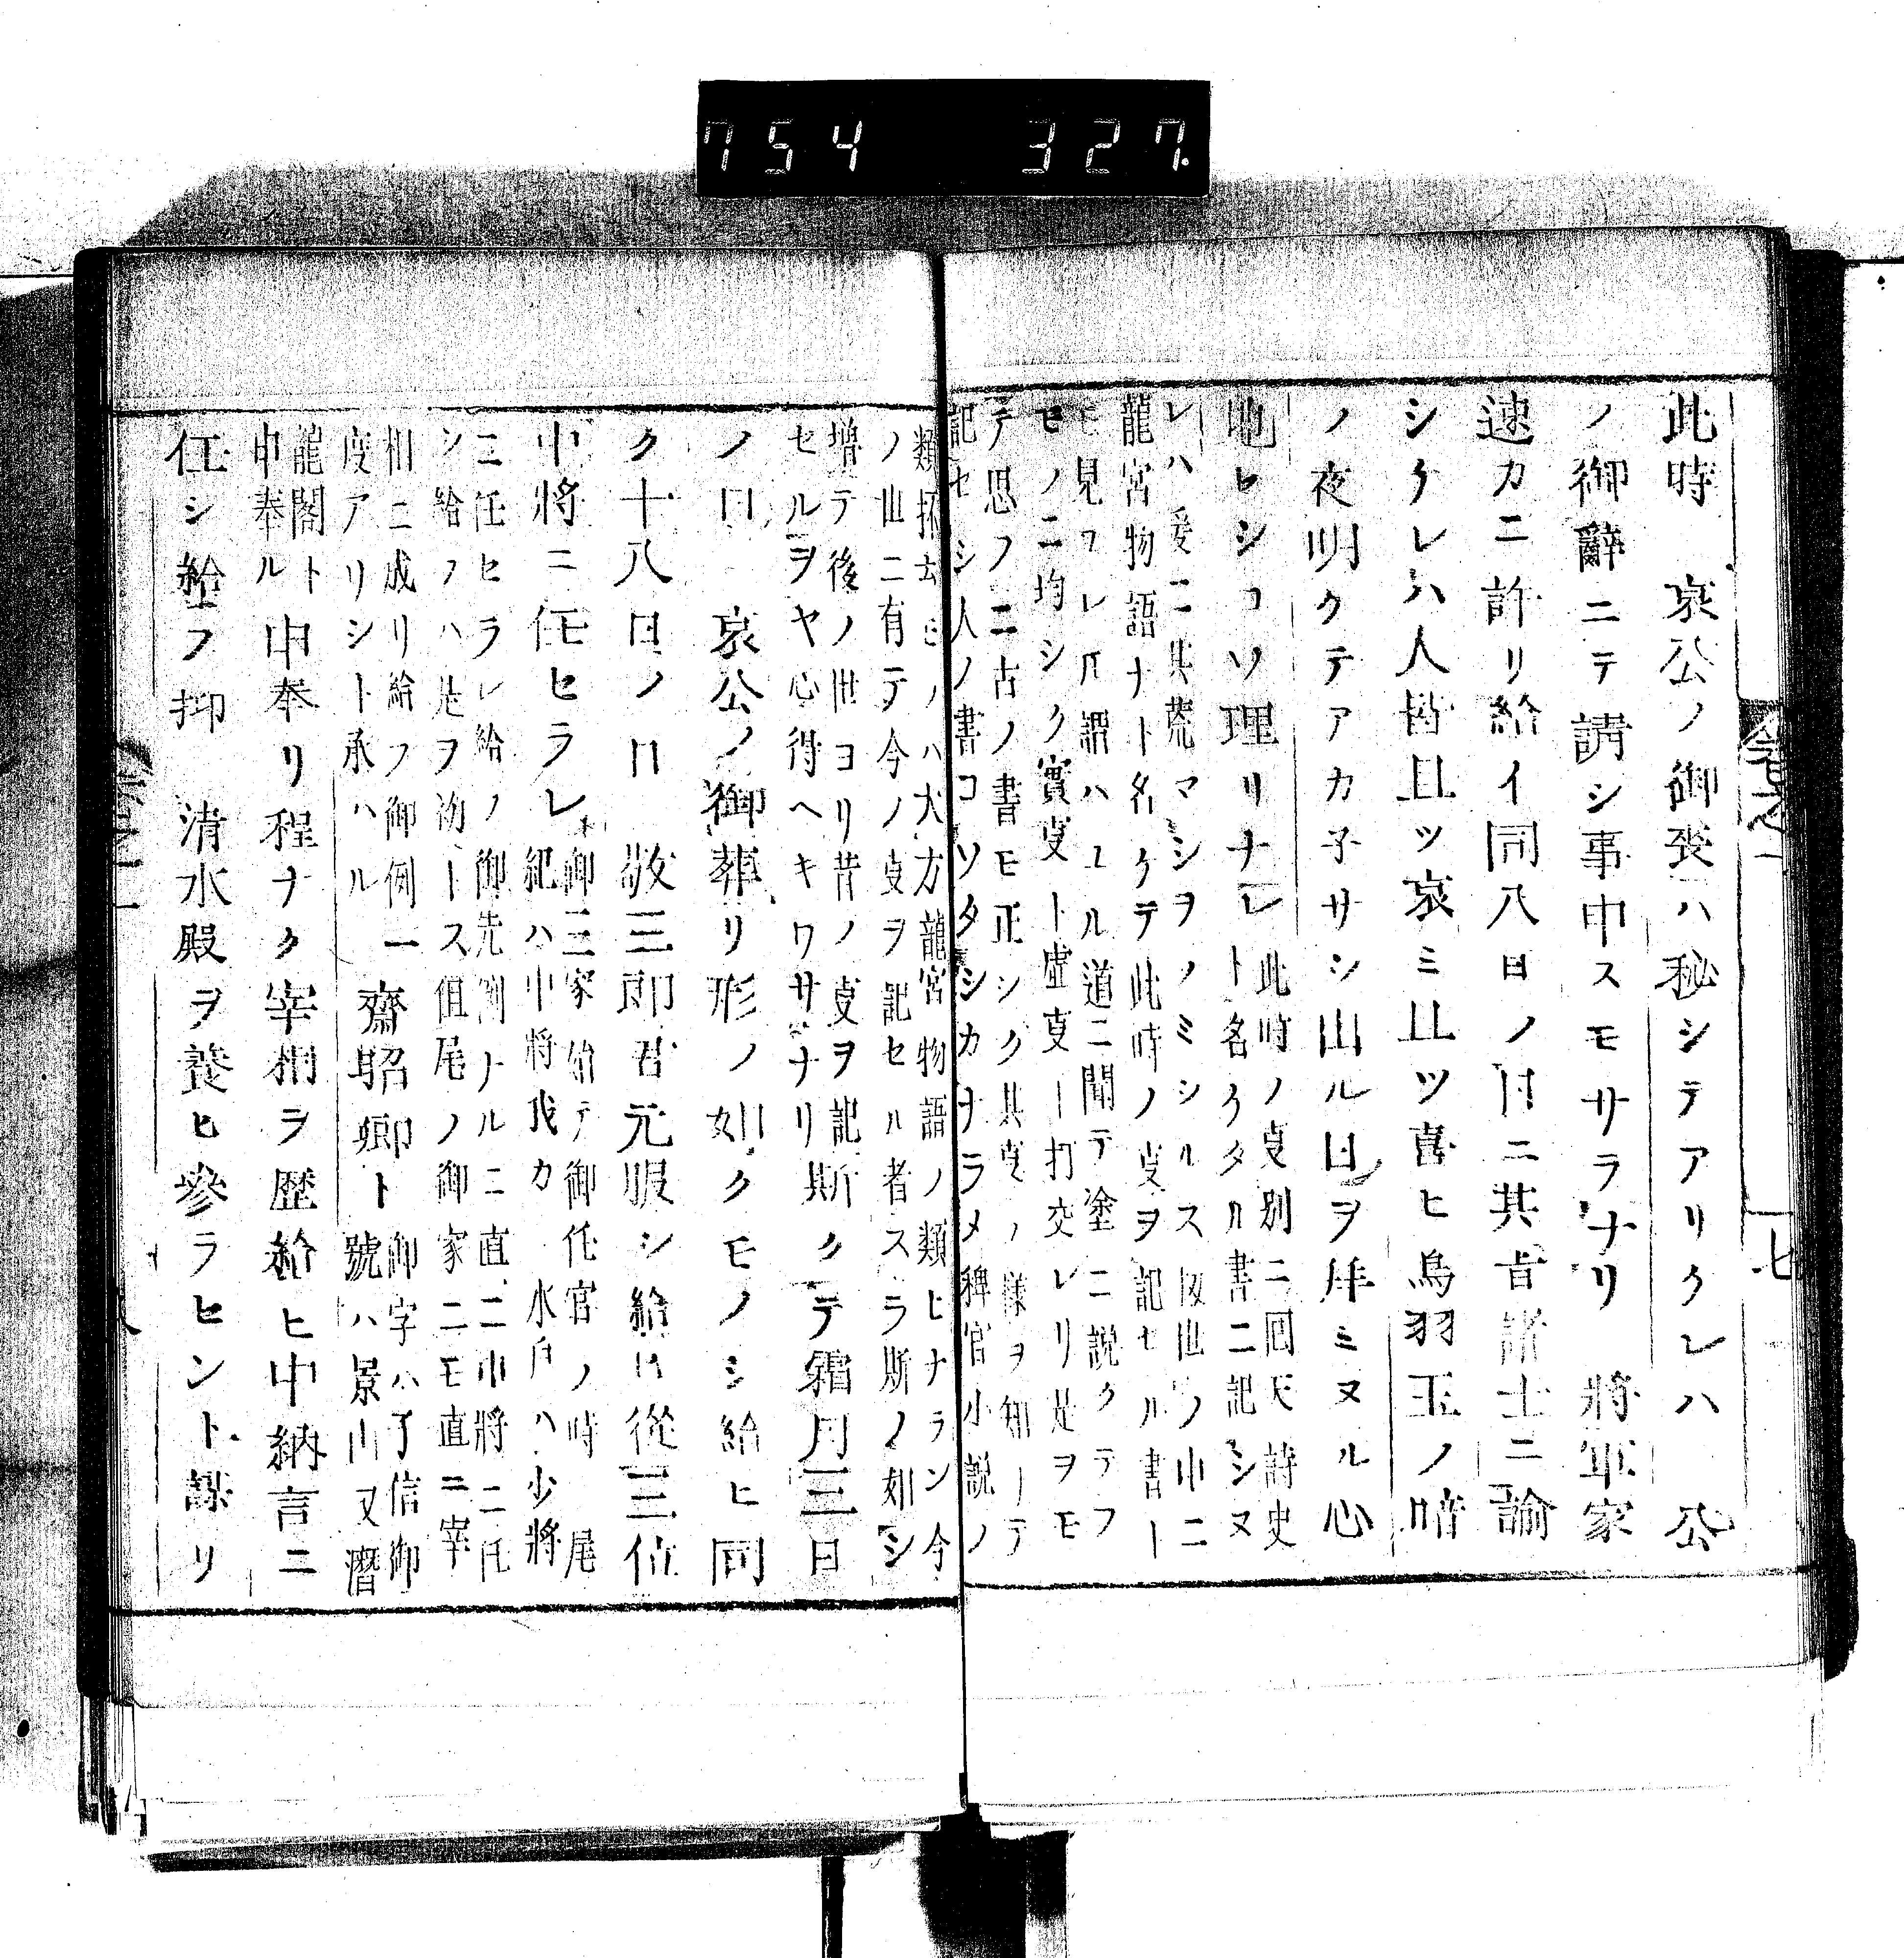 754 327.
七
此時 哀公ノ御喪ハ秘シテアリクレハ 公
ノ御辭ニテ請シ事申スモサラナリ 將軍家
速カニ許リ給イ同八日ノ日ニ其旨諸士ニ諭
シケレハ人皆且ツ哀ミ且ツ喜ヒ烏羽玉ノ暗
ノ夜明クテアカ子サシ出ル日ヲ拜ミヌル心
地ヒシコソ理リナレ
此時ノ㕝別ニ回天詩史
ト名クタル書ニ記シヌ
レハ爰ニ其荒マシヲノミシルス扨世ノ中ニ
龍宮物語ナト名クテ此時ノ㕝ヲ記セル書ー
モ見フレ𪜈謂ハユル道ニ聞テ塗ニ説クテフ
モノニ均シク實㕝ト虚㕝ー打交レリ是ヲモ
テ思フニ古ノ書モ正シク其㕝ノ樣ヲ知ーテ
記セシ人ノ書コソタシカナラメ稗官小説ノ
類拆去モノハ大方龍宮物語ノ類ヒナラン今
ノ世ニ有テ今ノ㕝ヲ記セル者スラ斯ノ如シ
增テ後ノ世ヨリ昔ノ㕝ヲ記
セルヲヤ心得ヘキワサナリ
斯クテ霜月三日
ノ日 哀公ノ御葬リ形ノ如クモノシ給ヒ同
ク十八日ノ日 敬三郎君元服シ給ヒ從三位
中將ニ任セラレ
御三家始テ御任官ノ時 尾
紀ハ中將我カ 水戶ハ少將
ニ任セラレ給ノ御先例ナルニ直ニ中將ニ任
シ給フハ是ヲ初ートス但尾ノ御家ニモ直ニ宰
相ニ成リ給フ御例一
度アリシト承ハル
齋昭卿ト
御字ハ子信御
號ハ景山又潛
龍閣ト
申奉ル
申奉リ程ナク宰相ヲ歷給ヒ中納言ニ
任シ給フ抑 清水殿ヲ養ヒ參ラセント謀リ